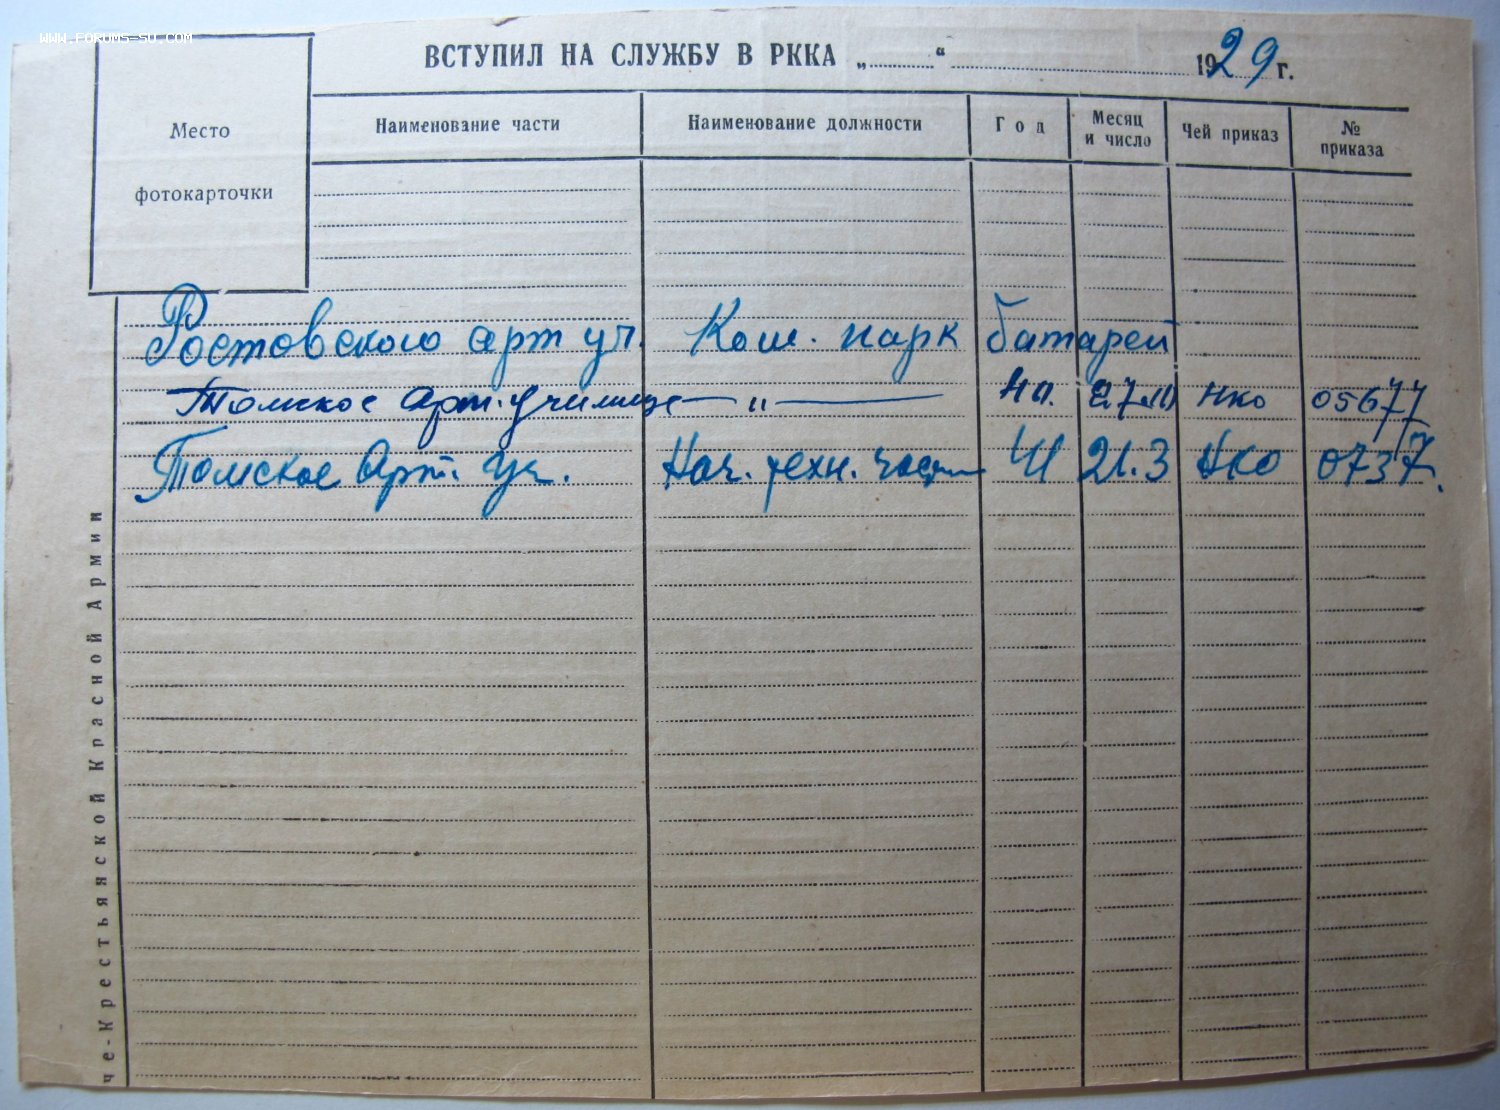 WWW.FORUMS-SU.COM
ВСТУПИЛ НА СЛУЖБУ В РККА „ “ 1929 г.
Место фотокарточки
Наименование части Наименование должности Год Месяц и число Чей приказ № приказа
Ростовского арт уч. Ком. парк батареи
Томское арт. училище — " — 40. 27.11 НКО 05677
Томское Арт. уч. Нач. техн. части 41 21.3 НКО 0737.
че-Крестьянской Красной Армии